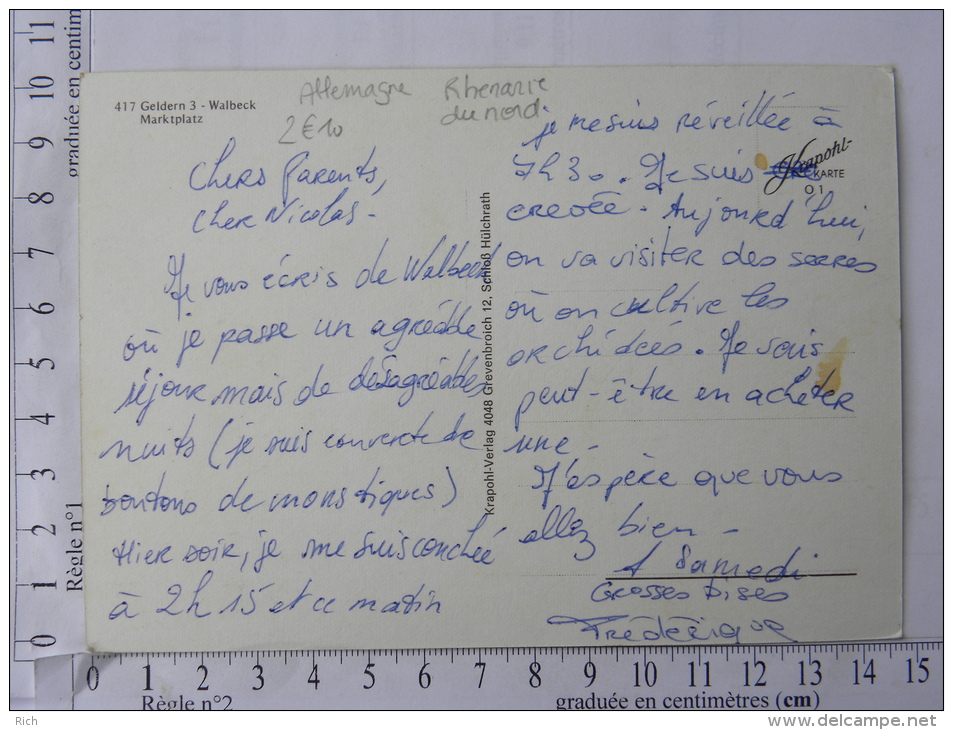 417 Geldern 3 - Walbeck
Marktplatz
Allemagne Rhenanie
du nord
2€10
Chers Parents,
cher Nicolas -
Je vous écris de Walbeck
où je passe un agréable
séjour mais de désagréables
nuits (je suis couverte de
boutons de moustiques)
Hier soir, je me suis couchée
à 2h 15 et ce matin
Krapohl-Verlag 4048 Grevenbroich 12, Schloß Hülchrath
je me suis réveillée à
7h30. Je suis
crevée. Aujourd'hui,
on va visiter des serres
où on cultive les
orchidées. Je vais
peut-être en acheter
une -
J'espère que vous
allez bien -
A Samedi
Grosses bises
Frédérique
Krapohl-
KARTE
O 1
Règle n°1
graduée en centim
0 1 2 3 4 5 6 7 8 9 10 11
0 1 2 3 4 5 6 7 8 9 10 11 12 13 14 15
Règle n°2 graduée en centimètres (cm)
Rich
www.delcampe.net